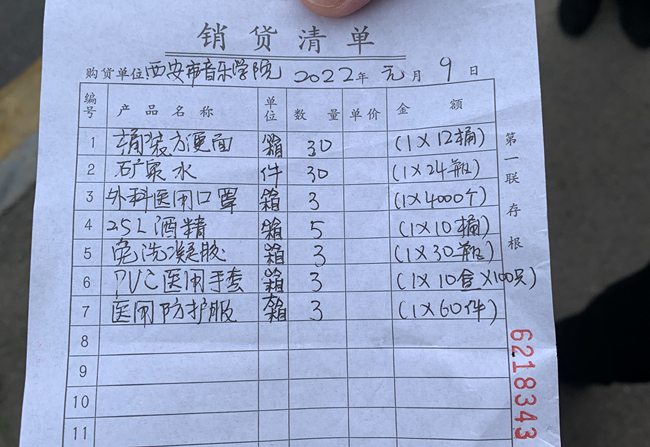 销货清单
购货单位 西安市音乐学院 2022年 元月 9日
编号 产品名称 单位 数量 单价 金额
1 桶装方便面 箱 30 (1×12桶)
2 矿泉水 件 30 (1×24瓶)
3 外科医用口罩 箱 3 (1×4000个)
4 25L酒精 箱 5 (1×10桶)
5 免洗凝胶 箱 3 (1×30瓶)
6 PVC医用手套 箱 3 (1×10盒×100只)
7 医用防护服 箱 3 (1×60件)
8
9
10
11
第一联存根
6218343